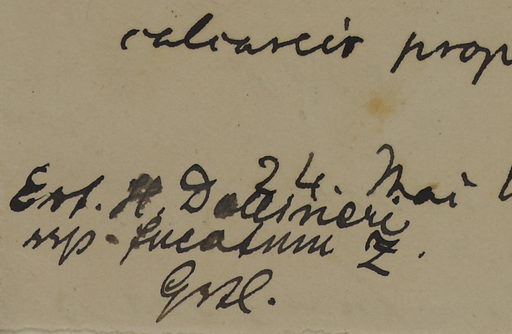 calcareis prop
24. Mai
Ext. H. Dollineri
ssp. fucatum Z.
Grtl.